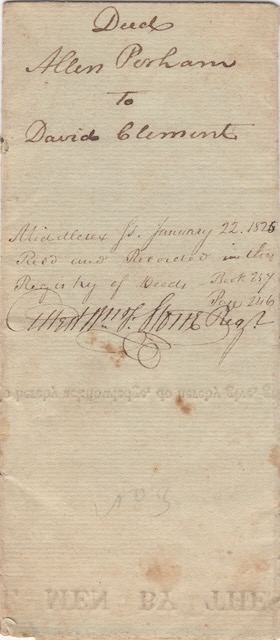 Deed
Allen Perham
To
David Clement
Middlesex Ss. January 22. 1825
Recd and Recorded in the
Registry of Deeds Book 257
Page 246
Attest Wm F Stone Regr